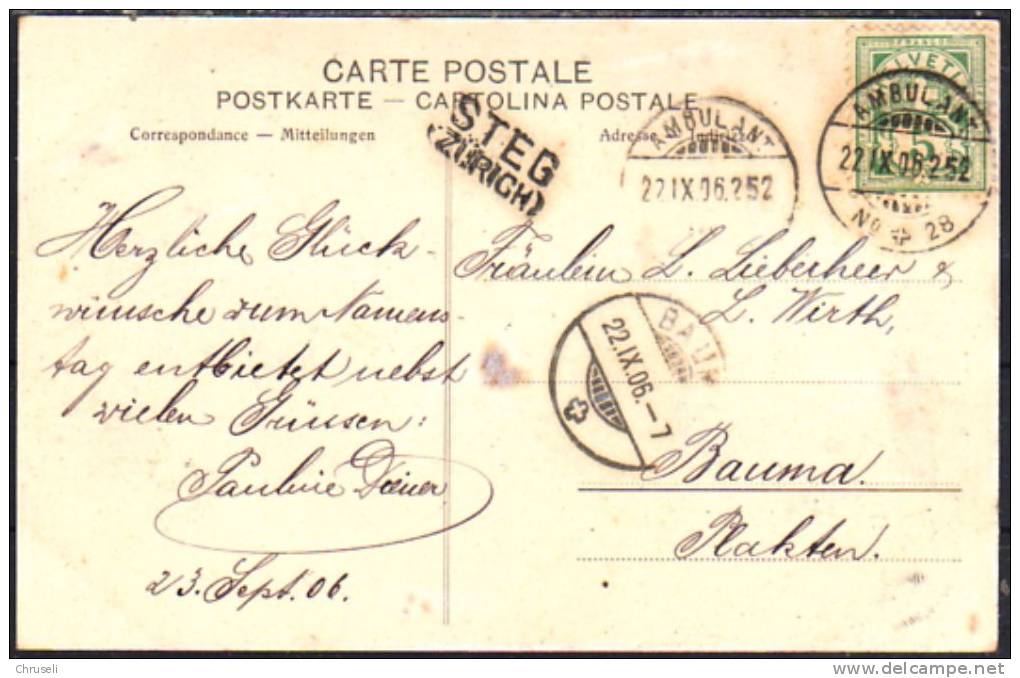 CARTE POSTALE
POSTKARTE — CARTOLINA POSTALE
Correspondance — Mitteilungen
Adresse
STEG
(ZÜRICH)
AMBULANT
22.IX.06.252
HELVETIA
AMBULANT
22.IX.06.252
No 28
5
Herzliche Glück-
wünsche zum Namens-
tag entbietet nebst
vielen Grüssen:
Pauline Diener
23. Sept. 06.
Fräulein L. Lieberherr &
L. Wirth,
Bauma.
BAUM
22.IX.06.-7
Chruseli
http://www.delcampe.net